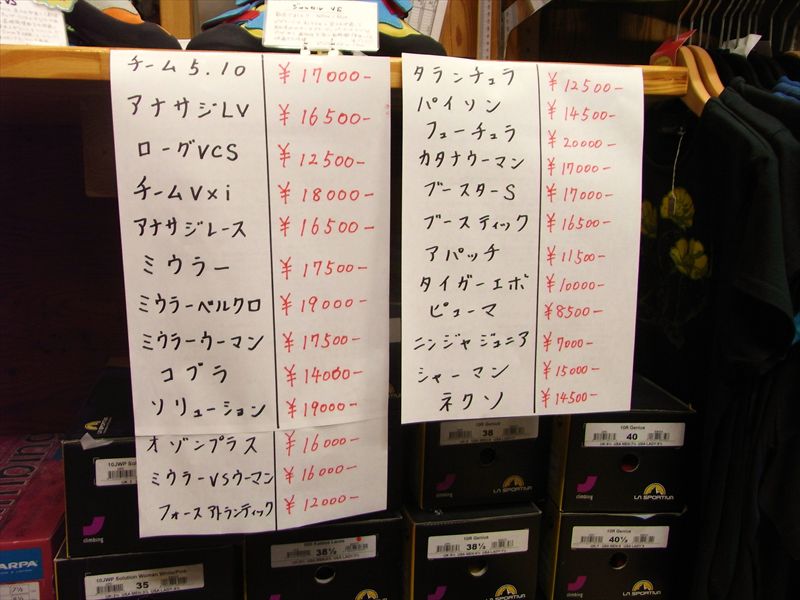 チーム 5.10 ¥17000-
アナサジLV ¥16500-
ローグVCS ¥12500-
チームVxi ¥18000-
アナサジレース ¥16500-
ミウラー ¥17500-
ミウラーベルクロ ¥19000-
ミウラーウーマン ¥17500-
コブラ ¥14000-
ソリューション ¥19000-
オゾンプラス ¥16000-
ミウラーVSウーマン ¥16000-
フォースアトランティック ¥12000-
タランチュラ ¥12500-
パイソン ¥14500-
フューチュラ ¥20000-
カタナウーマン ¥17000-
ブースターS ¥17000-
ブースティック ¥16500-
アパッチ ¥11500-
タイガーエボ ¥10000-
ピューマ ¥8500-
ニンジャジュニア ¥7000-
シャーマン ¥15000-
ネクソ ¥14500-
10R Genius
38
LA SPORTIVA
climbing
10R Genius
40
LA SPORTIVA
climbing
10R Genius
38½
LA SPORTIVA
climbing
10R Genius
40½
LA SPORTIVA
climbing
38½
10JWP Solution Woman White/Pink
35
climbing
ARPA